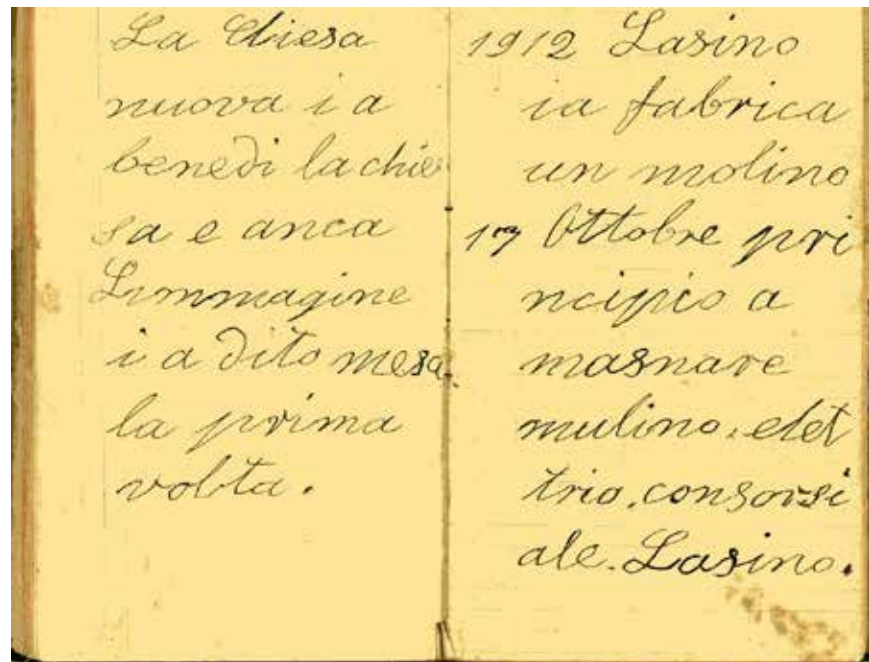 La Chiesa
nuova i a
benedi la chie
sa e anca
Limmagine
i a dito mesa
la prima
volta.
1912 Lasino
ia fabrica
un molino
17 Ottobre pri
ncipio a
masnare
mulino. elet
trio. consorsi
ale. Lasino.